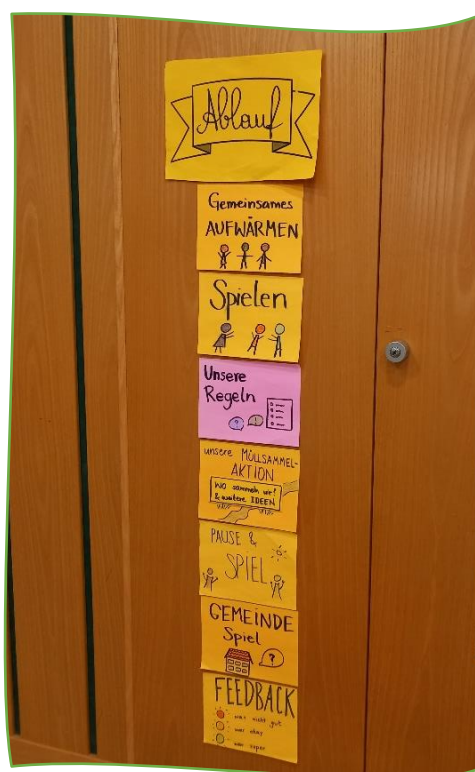 Ablauf
Gemeinsames
AUFWÄRMEN
Spielen
Unsere
Regeln
unsere MÜLLSAMMEL-
AKTION
WO sammeln wir?
& weitere IDEEN
PAUSE &
SPIEL
GEMEINDE
Spiel
?
FEEDBACK
war nicht gut
war okay
war super